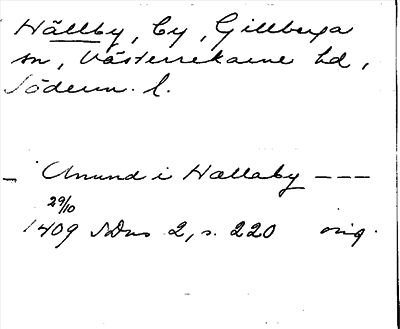 Hällby, by, Gillberga
sn, Västerrekarne hd,
Söderm. l.
– Anund i Hallaby ---
29/10
1409 SDns 2, s. 220 orig.